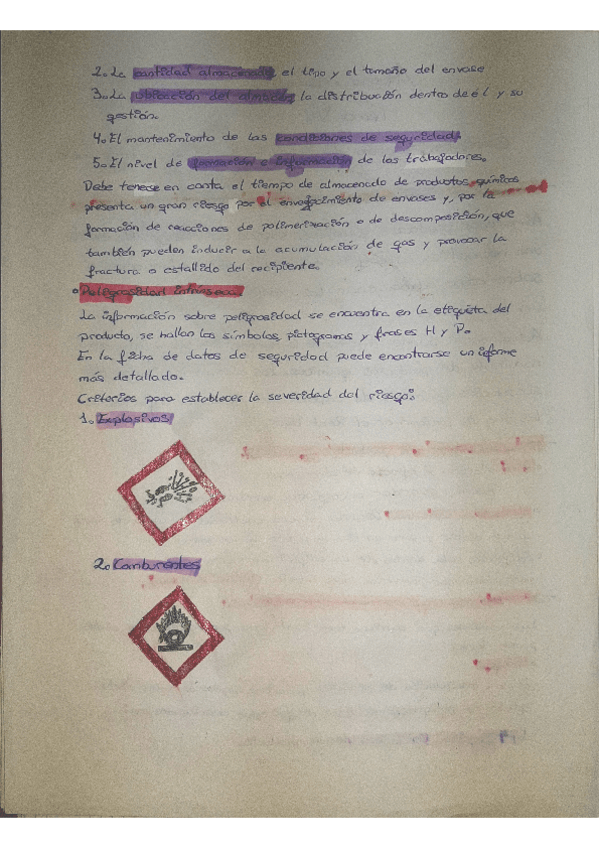 2. La cantidad almacenada, el tipo y el tamaño del envase
3. La ubicación del almacén, la distribución dentro de él y su
gestión.
4. El mantenimiento de las condiciones de seguridad.
5. El nivel de formación e información de los trabajadores.
Debe tenese en canta el tiempo de almacenado de productos químicos
presenta un gran riesgo por el envejecimiento de envases y, por la
formación de reacciones de polimerización o de descomposición, que
también pueden inducir a la acumulación de gas y provocar la
fractura o estallido del recipiente.
• Peligrosidad intrínseca
La información sobre peligrosidad se encuentra en la etiqueta del
producto, se hallan los símbolos, pictogramas y frases H y P.
En la ficha de datos de seguridad puede encontrarse un informe
más detallado.
Criterios para establecer la severidad del riesgo:
1. Explosivos
2. Comburentes